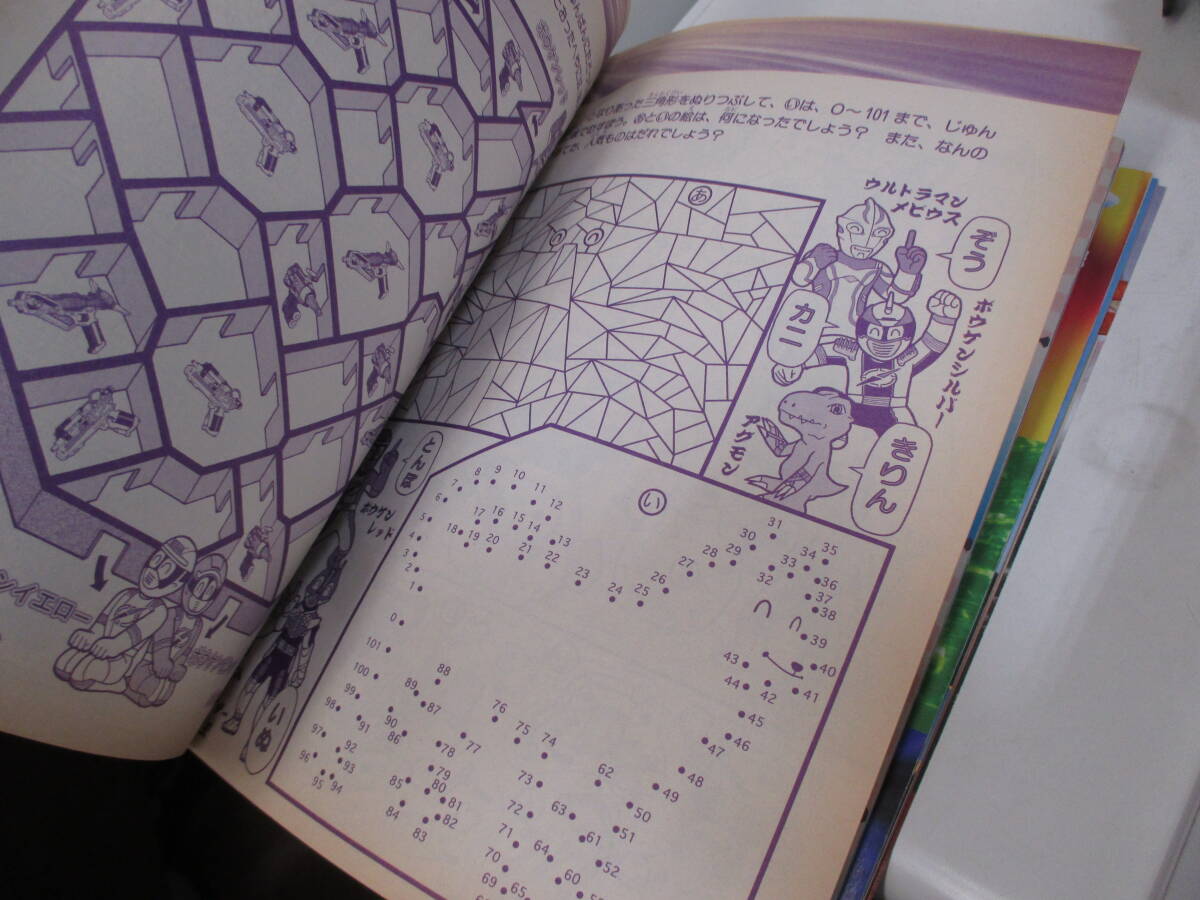 三角形をぬりつぶして、いは、0～101まで、じゅん
あといの絵は、何になったでしょう？ また、なんの
人気ものはだれでしょう？
あ
ウルトラマン
メビウス
ぞう
カニ
ボウケンシルバー
きりん
アグモン
とんぼ
ボウケン
レッド
いぬ
い
ンイエロー
0
1
2
3
4
5
6
7
8
9
10
11
12
13
14
15
16
17
18
19
20
21
22
23
24
25
26
27
28
29
30
31
32
33
34
35
36
37
38
39
40
41
42
43
44
45
46
47
48
49
50
51
52
60
61
62
63
64
65
69
70
71
72
73
74
75
76
77
78
79
80
81
82
83
84
85
86
87
88
89
90
91
92
93
94
95
96
97
98
99
100
101